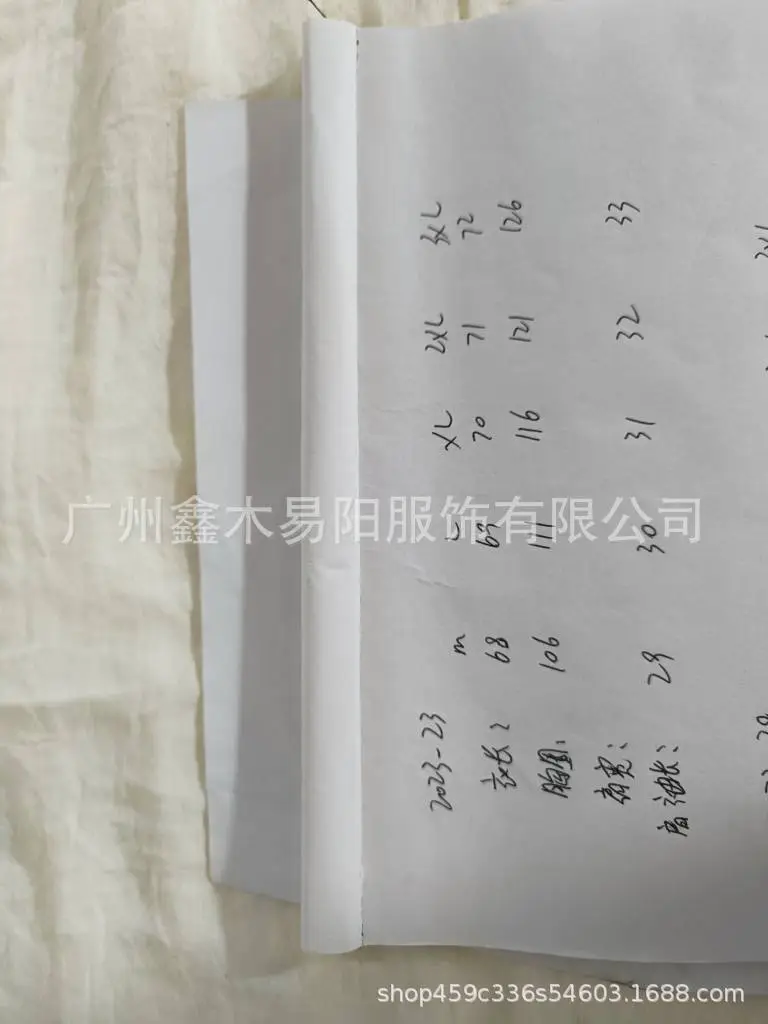 2023-23
m L XL 2XL 3XL
衣长: 68 69 70 71 72
胸围: 106 111 116 121 126
肩宽:
肩袖长: 29 30 31 32 33
广州鑫木易阳服饰有限公司
shop459c336s54603.1688.com